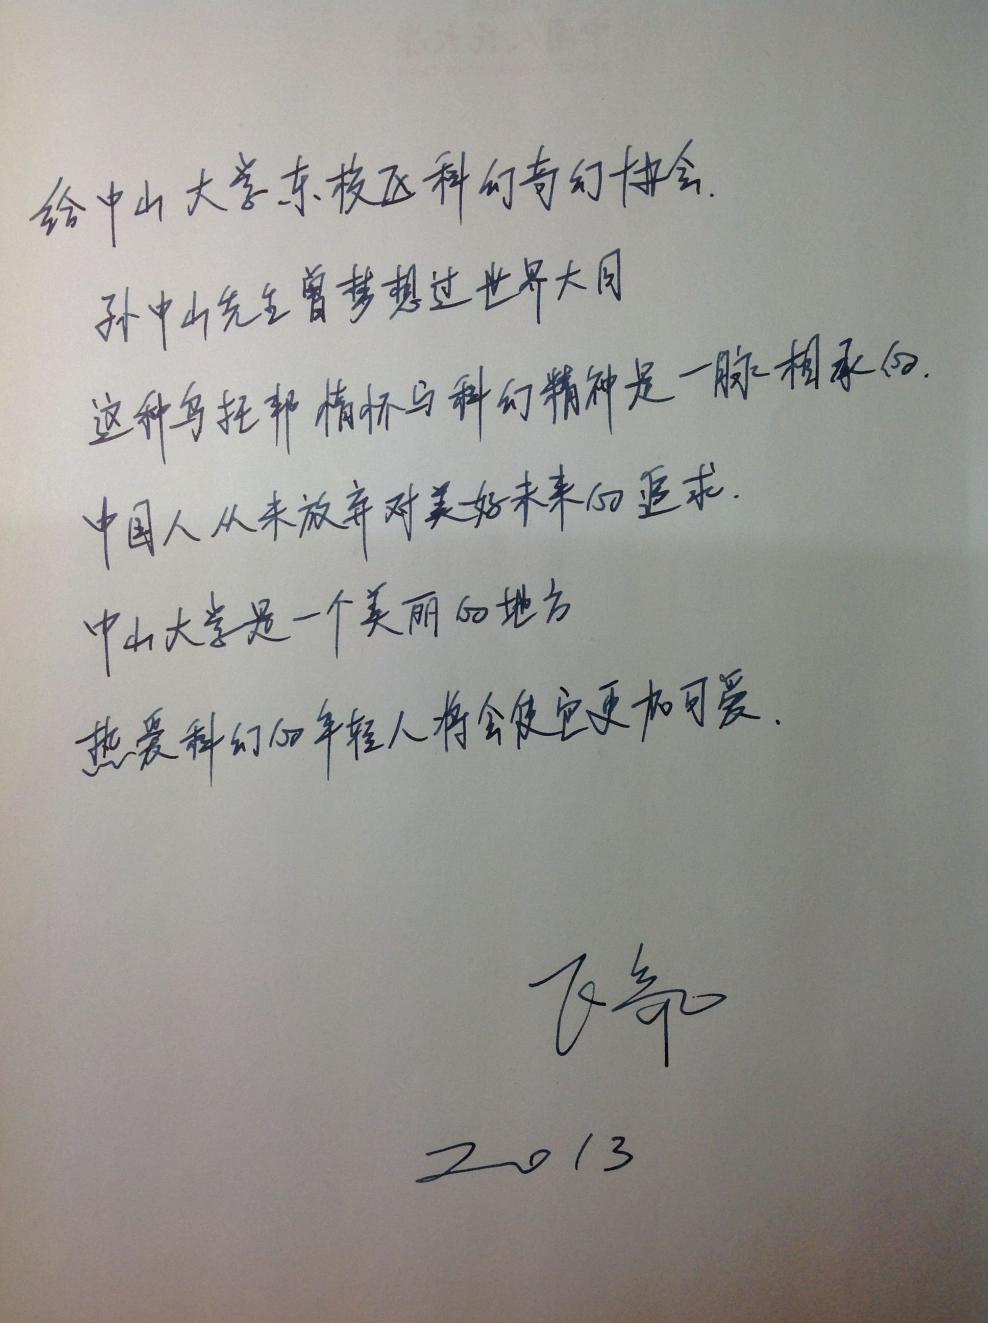 给中山大学东校区科幻奇幻协会.
孙中山先生曾梦想过世界大同
这种乌托邦情怀与科幻精神是一脉相承的.
中国人从未放弃对美好未来的追求.
中山大学是一个美丽的地方
热爱科幻的年轻人将会使它更加可爱.
飞氘
2013